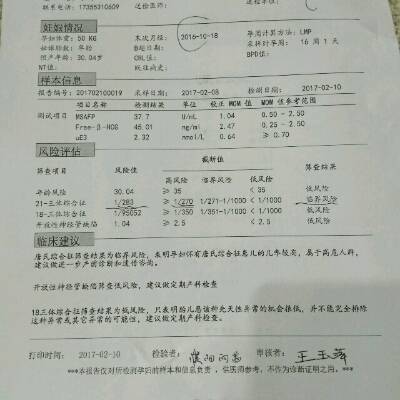 联系电话: 17355310609 送检医师:
妊娠情况
孕妇体重: 50 KG 末次月经: 2016-10-18 孕周计算方法: LMP
妊娠胎数: 单胎 B超日期: 采样时孕周: 16 周 1 天
预产年龄: 30.04岁 CRL值: BPD值:
NT值: 既往病史:
样本信息
报告编号: 201702100019 采样日期: 2017-02-08 检测日期: 2017-02-10
项目名称 检测结果 单位 校正 MOM 值 MOM 值参考范围
测试项目 MSAFP 37.7 U/mL 1.04 0.50 - 2.50
Free-β-HCG 45.01 ng/mL 2.47 0.25 - 2.50
uE3 2.32 nmol/L 0.64 ≥ 0.70
风险评估
筛查项目 风险值 截断值 筛查结果
高风险 临界风险 低风险
年龄风险 30.04 ≥ 35 < 35 低风险
21-三体综合征 1/283 ≥ 1/270 1/271-1/1000 < 1/1000 临界风险
18-三体综合征 1/95052 ≥ 1/350 1/351-1/1000 < 1/1000 低风险
开放性神经管缺陷 1.04 ≥ 2.5 < 2.5 低风险
临床建议
唐氏综合征筛查结果为临界风险, 表明孕妇怀有唐氏综合征患儿的几率较高, 属于高危人群,
建议做进一步产前诊断和遗传咨询。
开放性神经管缺陷筛查低风险, 建议做定期产科检查
18三体综合征筛查结果为低风险, 只表明胎儿患该种先天性异常的机会很低, 并不能完全排除
这种异常或其它异常的可能性, 建议做定期产科检查。
打印时间: 2017-02-10 检验者: 审核者: 王玉萍
***本报告仅对所检测孕妇的样本和信息负责, 供医师参考, 不作为诊断证明之用。***